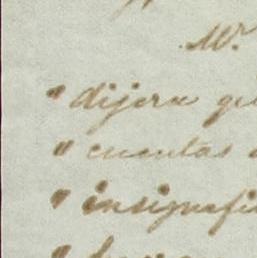 Mr.
" dijera que
" cuentas
" insignifi